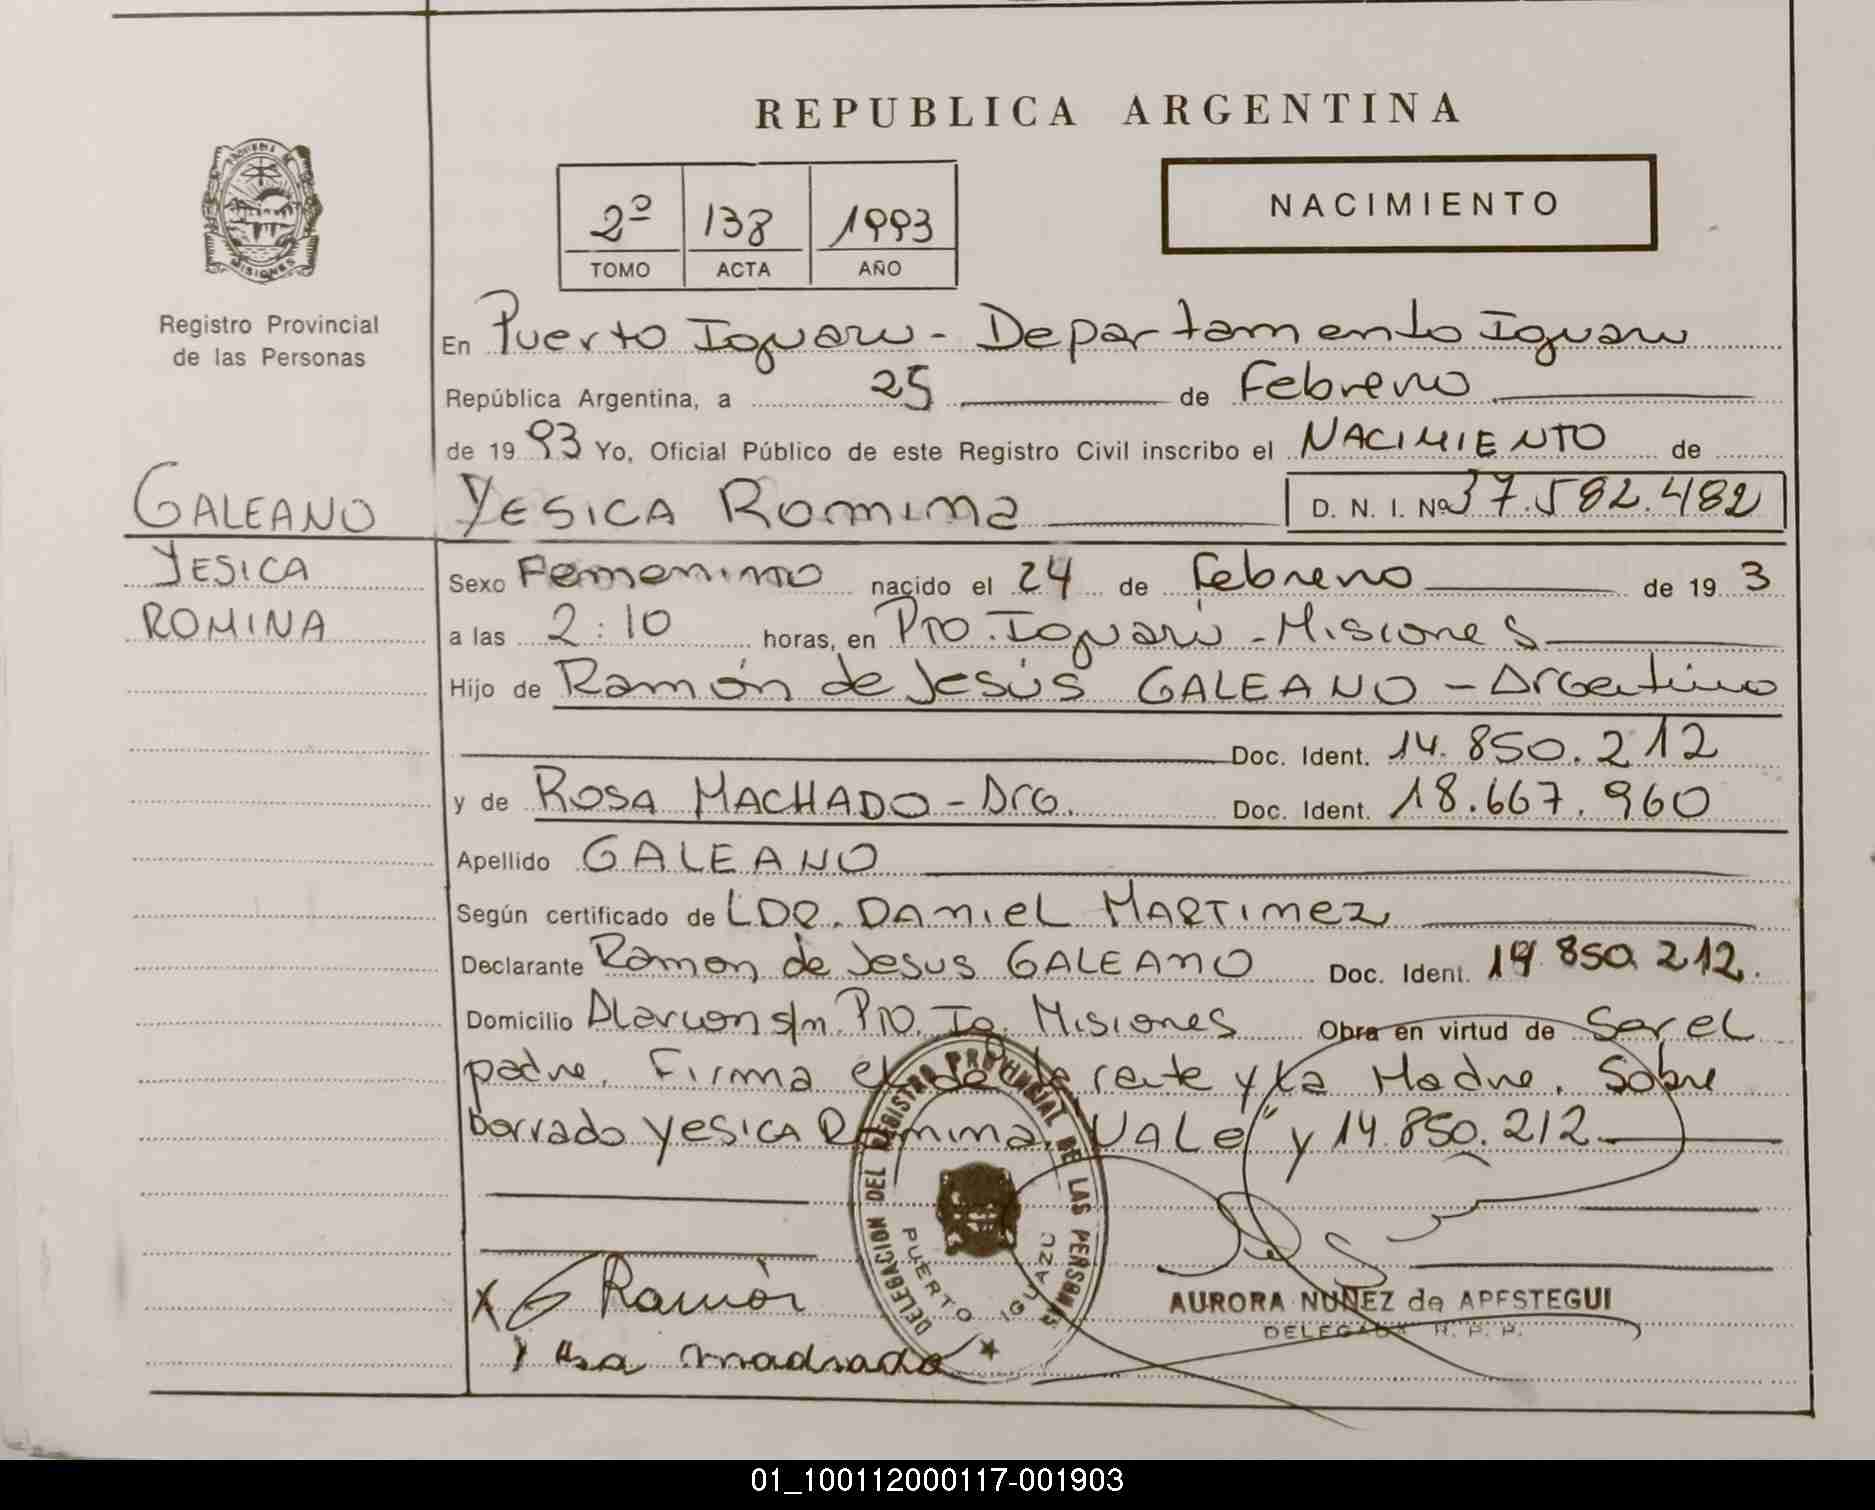 REPUBLICA ARGENTINA
PROVINCIA DE MISIONES
2º 138 1993
TOMO ACTA AÑO
NACIMIENTO
Registro Provincial
de las Personas
En Puerto Iguazu - Departamento Iguazu
República Argentina, a 25 de Febrero
de 19 93 Yo, Oficial Público de este Registro Civil inscribo el NACIMIENTO de
GALEANO YESICA Romina D. N. I. Nº 37.582.482
YESICA
ROMINA
Sexo Femenino nacido el 24 de Febrero de 19 3
a las 2:10 horas, en Pto. Iguazú - Misiones
Hijo de Ramón de Jesús GALEANO - Argentino
Doc. Ident. 14.850.212
y de ROSA MACHADO - Arg. Doc. Ident. 18.667.960
Apellido GALEANO
Según certificado de LDR. DANIEL MARTINEZ
Declarante Ramon de Jesus GALEANO Doc. Ident. 14 850.212.
Domicilio Alarcon s/n. Pto. Ig. Misiones Obra en virtud de Ser el
padre. Firma el declarante y La Madre. Sobre
borrado YESICA Romina "VALE" y 14.850.212
DELEGACION DEL REGISTRO PROVINCIAL DE LAS PERSONAS
PUERTO IGUAZU
X G Ramón
AURORA NUÑEZ de APESTEGUI
DELEGADA R. P. P.
01_100112000117-001903